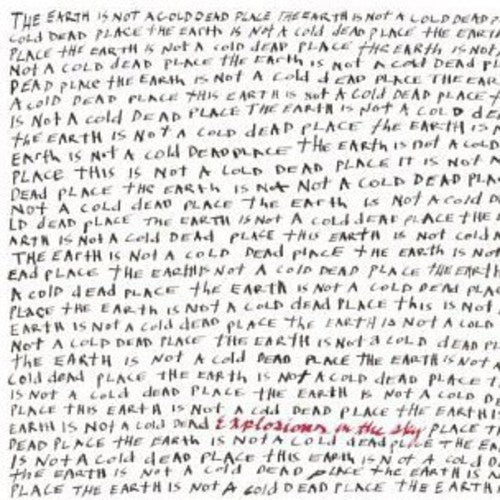 THE EARTH IS NOT A COLD DEAD PLACE THE EARTH IS NOT A COLD DEAD P
COLD DEAD PLACE THE EARTH IS NOT A COLD DEAD PLACE THE EARTH
PLACE THE EARTH IS NOT A COLD DEAD PLACE THE EARTH IS NOT
NOT A COLD DEAD PLACE THE EARTH IS NOT A COLD DEAD PL
DEAD PLACE THE EARTH IS NOT A COLD DEAD PLACE THE EAR
A COLD DEAD PLACE THIS EARTH IS NOT A COLD DEAD PLACE
IS NOT A COLD DEAD PLACE THE EARTH IS NOT A COLD DE
THE EARTH IS NOT A COLD DEAD PLACE THE EARTH IS
EARTH IS NOT A COLD DEAD PLACE THE EARTH IS NOT A COLD
PLACE THIS IS NOT A COLD DEAD PLACE IT IS NOT A
DEAD PLACE THE EARTH IS NOT A COLD DEAD PLA
NOT A COLD DEAD PLACE THE EARTH IS NOT A COLD D
LD DEAD PLACE THE EARTH IS NOT A COLD DEAD PLACE THE
ARTH IS NOT A COLD DEAD PLACE THIS EARTH IS NOT COLD
THE EARTH IS NOT A COLD DEAD PLACE THE EARTH IS NOT
EAD PLACE THE EARTH IS NOT A COLD DEAD PLACE THE EARTH
A COLD DEAD PLACE THE EARTH IS NOT A COLD DEAD PLAC
PLACE THE EARTH IS NOT A COLD DEAD PLACE THIS IS NOT
EARTH IS NOT A COLD DEAD PLACE THE EARTH IS NOT A COLD
NOT A COLD DEAD PLACE THE EARTH IS NOT A COLD DEAD PL
THE EARTH IS NOT A COLD DEAD PLACE THE EARTH IS NOT A
COLD DEAD PLACE THE EARTH IS NOT A COLD DEAD PLACE T
IS NOT A COLD DEAD PLACE THE EARTH IS NOT A COLD DEAD
PLACE THIS EARTH IS NOT A COLD DEAD PLACE THE EARTH
EARTH IS NOT A COLD DEAD Explosions in the sky PLACE T
DEAD PLACE THE EARTH IS NOT A COLD DEAD PLACE THE EA
IS NOT A COLD DEAD PLACE THIS EARTH IS NOT A COLD DE
THE EARTH IS NOT A COLD DEAD PLACE THE EARTH IS NOT
PLACE THE EARTH IS NOT A COLD DEAD PLACE THE EARTH